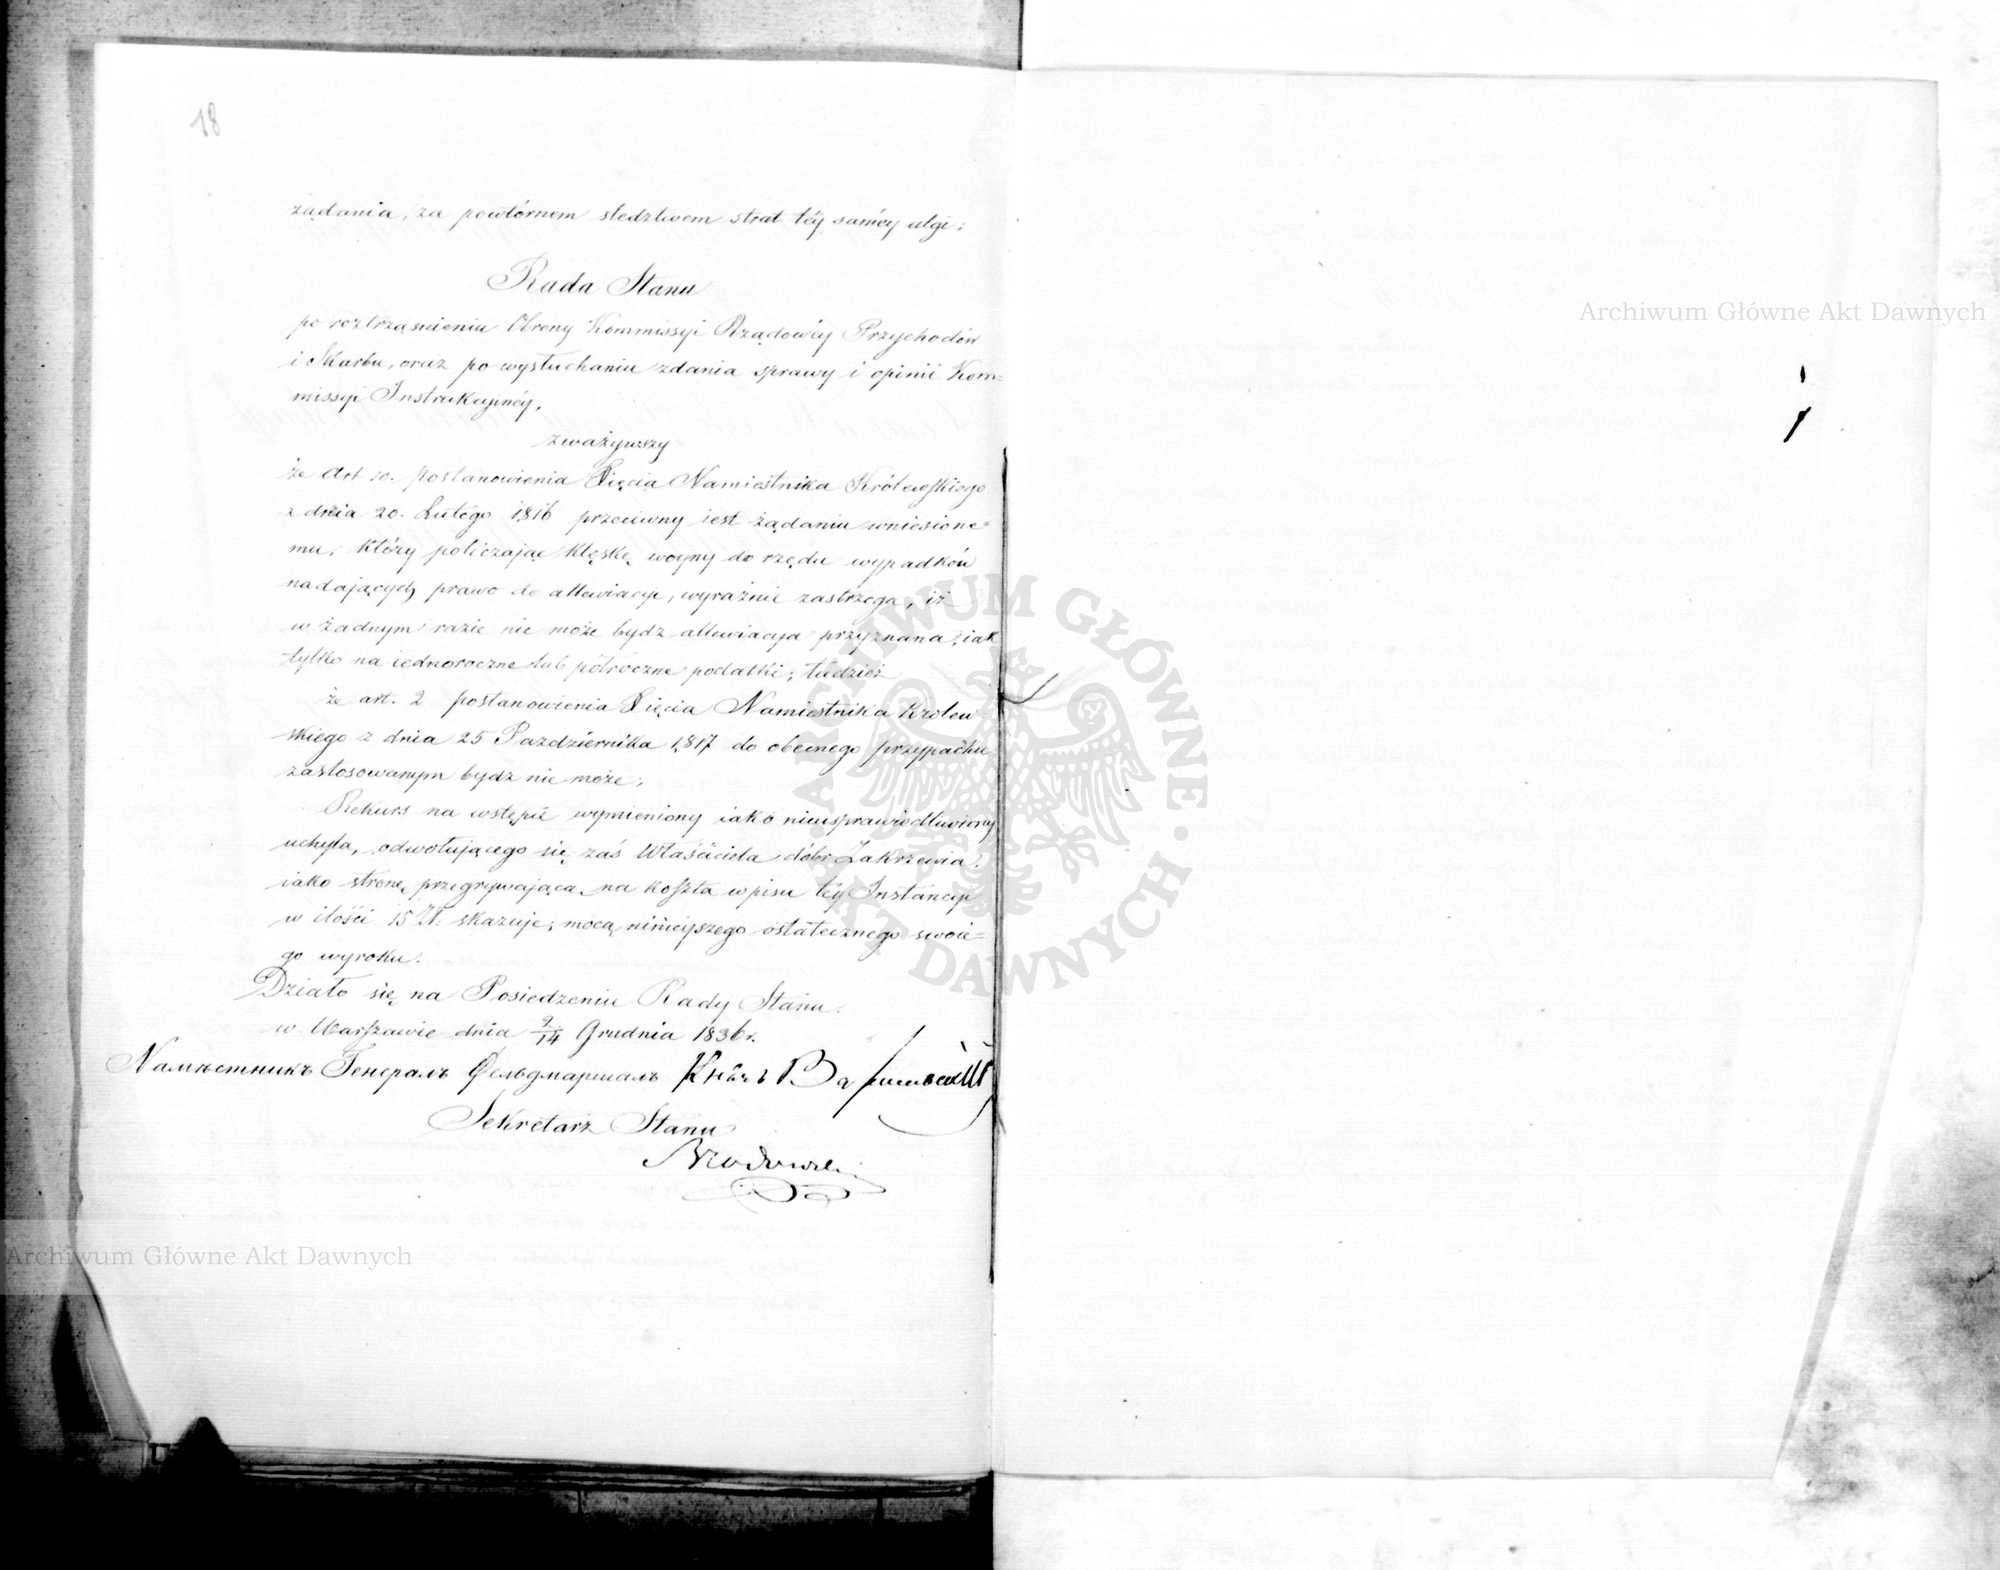 18
żądania, za powtórnem sledztwem strat téy saméy ulgi;
Rada Stanu
po roztrząsnieniu Obrony Kommissyi Rządowéy Przychodów
i Skarbu, oraz po wysłuchaniu zdania sprawy i opinii Kom=
missyi Instrukcyinéy,
zważywszy
że Art 10. Postanowienia Xięcia Namiestnika Królewskiego
z dnia 20. Lutego 1816 przeciwny iest żądaniu wniesione=
mu, który policzając klęskę woyny do rzędu wypadków
nadających prawo do allewiacyi, wyraźnie zastrzega, iż
w żadnym razie nie może bydz allewiacya przyznana, iak
tylko na iednoroczne lub półroczne podatki; tudzież
że art. 2 postanowienia Xięcia Namiestnika Krolew=
skiego z dnia 25 Pazdziernika 1817 do obecnego przypadku
zastosowanym bydz nie może;
Rekurs na wstępie wymieniony iako nieusprawiedliwiony
uchyla, odwołującego się zaś Właściciela dóbr Zakrzewia
iako stronę przegrywającą na koszta wpisu téy Instancyi
w ilości 15 Zł: skazuje; mocą ninieyszego ostatecznego swoie=
go wyroku.
Działo się na Posiedzeniu Rady Stanu
w Warszawie dnia 2/14 Grudnia 1836 r.
Намѣстникъ Генералъ Фельдмаршалъ Князь Варшавскій
Sekretarz Stanu
Archiwum Główne Akt Dawnych
Archiwum Główne Akt Dawnych
ARCHIWUM GŁÓWNE
AKT DAWNYCH